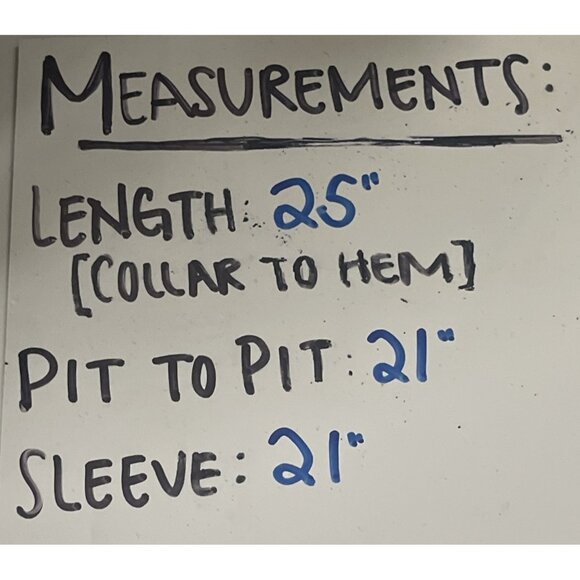 MEASUREMENTS:
LENGTH: 25"
[COLLAR TO HEM]
PIT TO PIT: 21"
SLEEVE: 21"